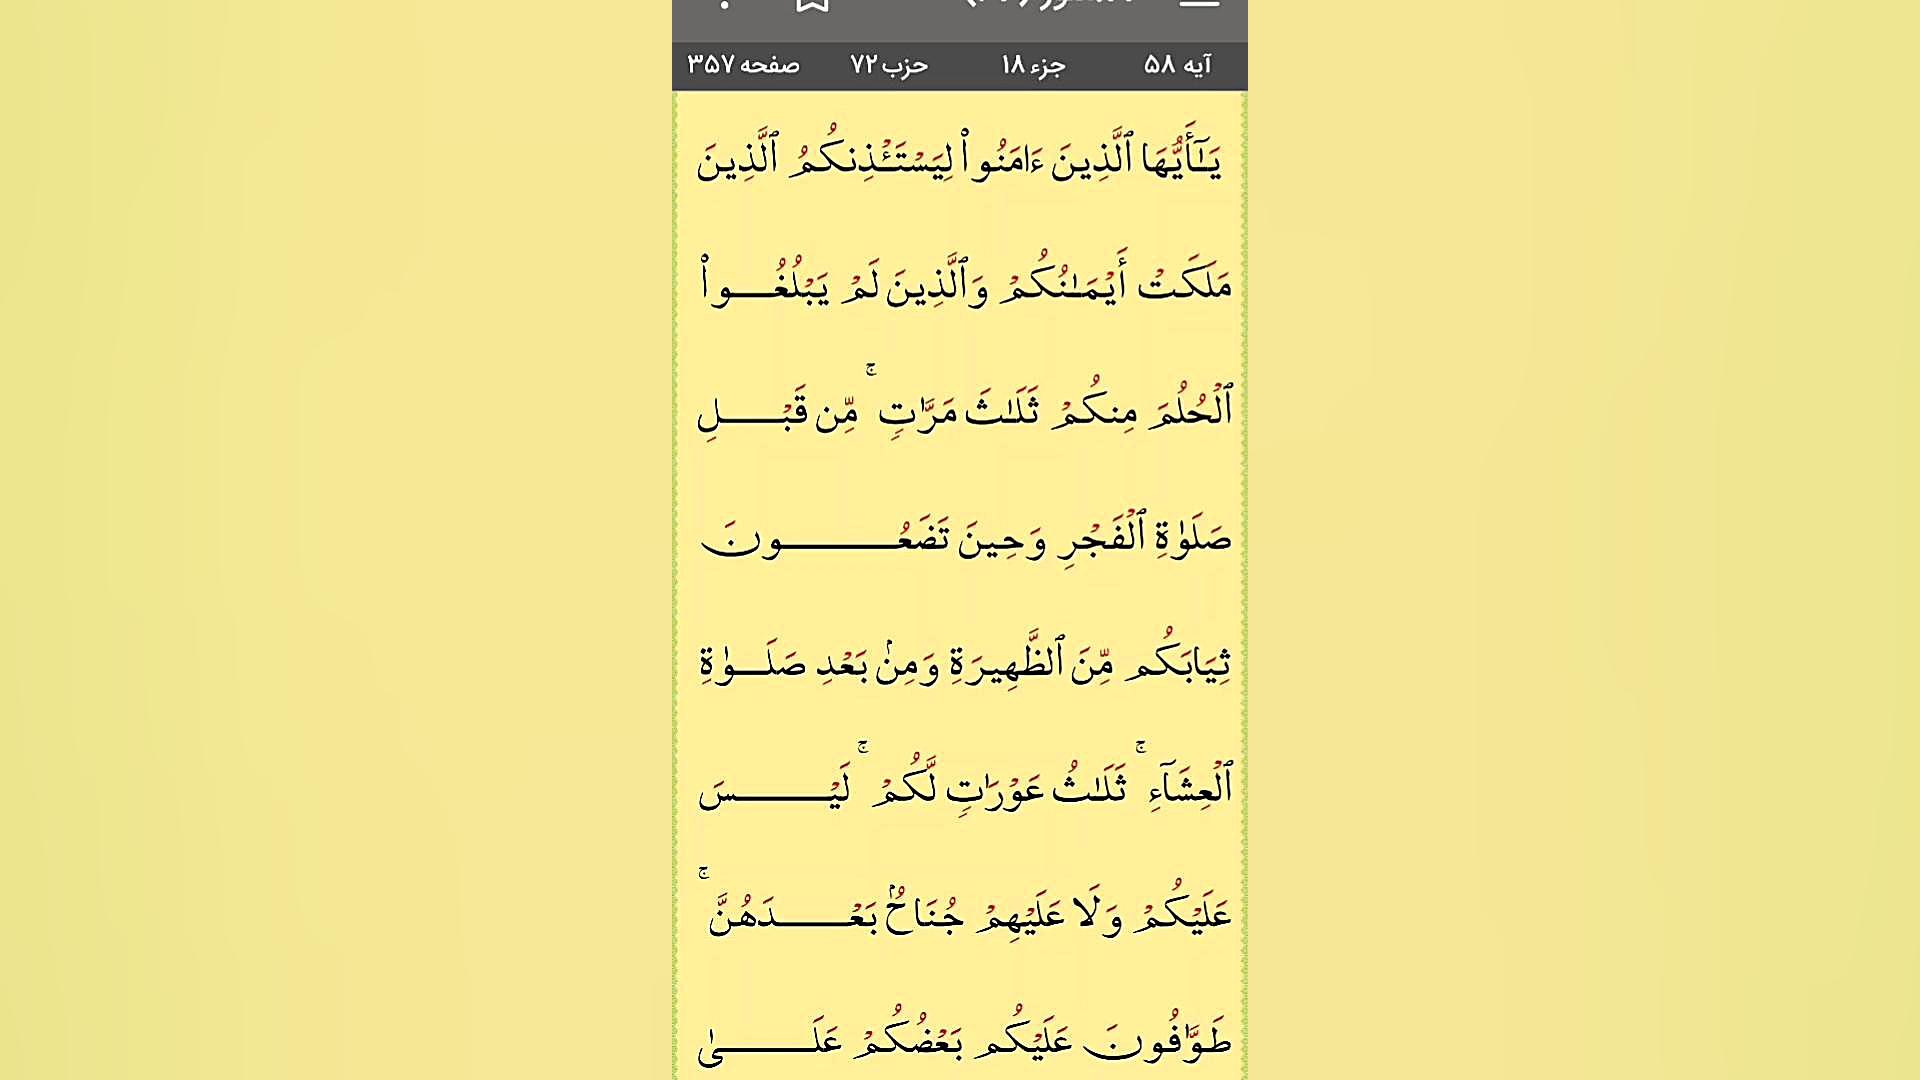 آیه ۵۸ جزء ۱۸ حزب ۷۲ صفحه ۳۵۷
يَـٰٓأَيُّهَا ٱلَّذِينَ ءَامَنُوا۟ لِيَسْتَـْٔذِنكُمُ ٱلَّذِينَ
مَلَكَتْ أَيْمَـٰنُكُمْ وَٱلَّذِينَ لَمْ يَبْلُغُـــوا۟
ٱلْحُلُمَ مِنكُمْ ثَلَـٰثَ مَرَّٰتٍ ۚ مِّن قَبْـــلِ
صَلَوٰةِ ٱلْفَجْرِ وَحِينَ تَضَعُـــــونَ
ثِيَابَكُم مِّنَ ٱلظَّهِيرَةِ وَمِنۢ بَعْدِ صَلَـــوٰةِ
ٱلْعِشَآءِ ۚ ثَلَـٰثُ عَوْرَٰتٍ لَّكُمْ ۚ لَيْـــــسَ
عَلَيْكُمْ وَلَا عَلَيْهِمْ جُنَاحٌۢ بَعْـــــدَهُنَّ ۚ
طَوَّٰفُونَ عَلَيْكُم بَعْضُكُمْ عَلَـــــىٰ